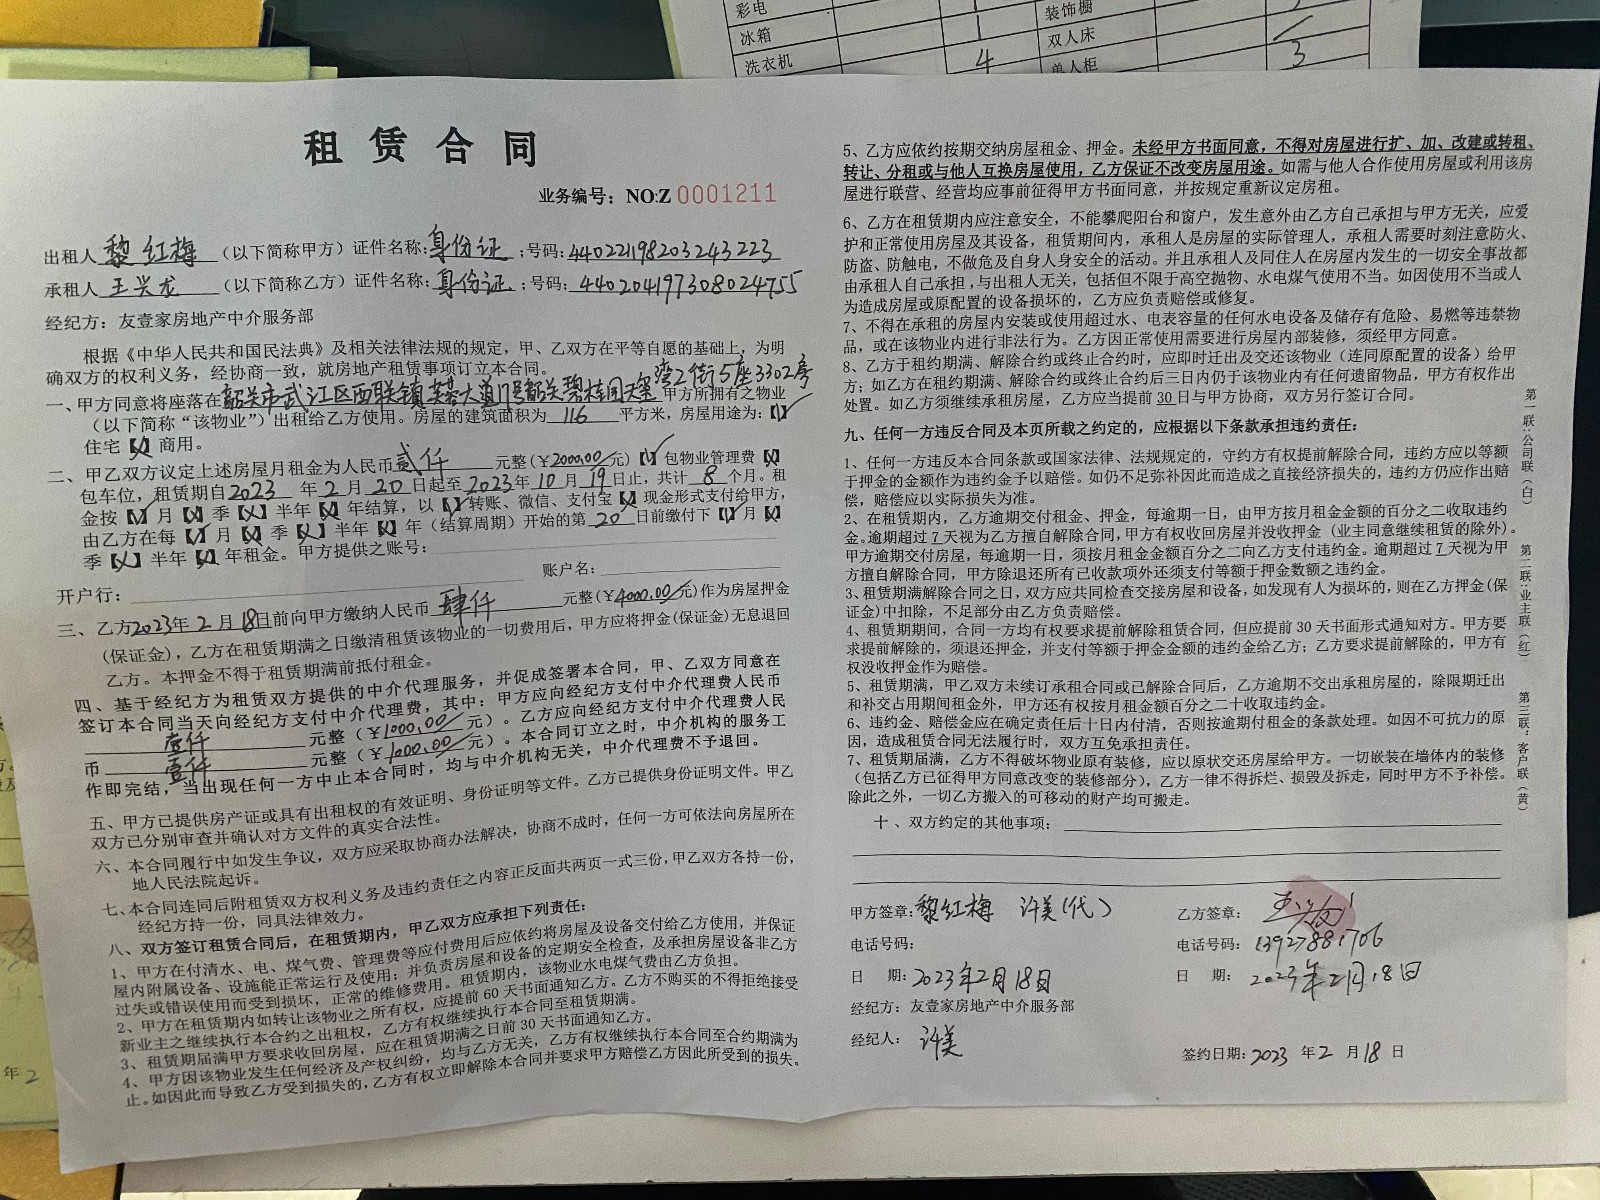 彩电 1 装饰橱
冰箱 1 双人床
洗衣机 4 单人柜 3
租赁合同
业务编号：NO:Z 0001211
出租人 黎红梅 （以下简称甲方）证件名称：身份证；号码：440221198203243223
承租人 王兴龙 （以下简称乙方）证件名称：身份证；号码：440204197308024755
经纪方：友壹家房地产中介服务部
根据《中华人民共和国民法典》及相关法律法规的规定，甲、乙双方在平等自愿的基础上，为明
确双方的权利义务，经协商一致，就房地产租赁事项订立本合同。
一、甲方同意将座落在韶关市武江区西联镇芙蓉大道17号韶关碧桂园天玺湾2街5座3302房 甲方所拥有之物业
（以下简称“该物业”）出租给乙方使用。房屋的建筑面积为 116 平方米，房屋用途为：【√】
住宅【X】商用。
二、甲乙双方议定上述房屋月租金为人民币 贰仟 元整（￥2000.00元）【√】包物业管理费【X】
包车位，租赁期自2023 年 2 月 20 日起至 2023年 10 月 19 日止，共计 8 个月。租
金按【√】月【X】季【X】半年【X】年结算，以【√】转账、微信、支付宝【X】现金形式支付给甲方，
由乙方在每【√】月【X】季【X】半年【X】年（结算周期）开始的第 20 日前缴付下【√】月【X】
季【X】半年【X】年租金。甲方提供之账号：
账户名：
开户行：
三、乙方2023年 2 月 18日前向甲方缴纳人民币 肆仟 元整（￥4000.00元）作为房屋押金
（保证金），乙方在租赁期满之日缴清租赁该物业的一切费用后，甲方应将押金（保证金）无息退回
乙方。本押金不得于租赁期满前抵付租金。
四、基于经纪方为租赁双方提供的中介代理服务，并促成签署本合同，甲、乙双方同意在
签订本合同当天向经纪方支付中介代理费，其中：甲方应向经纪方支付中介代理费人民币
壹仟 元整（￥1000.00元）。乙方应向经纪方支付中介代理费人民
币 壹仟 元整（￥1000.00元）。本合同订立之时，中介机构的服务工
作即完结，当出现任何一方中止本合同时，均与中介机构无关，中介代理费不予退回。
五、甲方已提供房产证或具有出租权的有效证明、身份证明等文件。乙方已提供身份证明文件。甲乙
双方已分别审查并确认对方文件的真实合法性。
六、本合同履行中如发生争议，双方应采取协商办法解决，协商不成时，任何一方可依法向房屋所在
地人民法院起诉。
七、本合同连同后附租赁双方权利义务及违约责任之内容正反面共两页一式三份，甲乙双方各持一份，
经纪方持一份，同具法律效力。
八、双方签订租赁合同后，在租赁期内，甲乙双方应承担下列责任：
1、甲方在付清水、电、煤气费、管理费等应付费用后应依约将房屋及设备交付给乙方使用，并保证
屋内附属设备、设施能正常运行及使用；并负责房屋和设备的定期安全检查，及承担房屋设备非乙方
过失或错误使用而受到损坏，正常的维修费用。租赁期内，该物业水电煤气费由乙方负担。
2、甲方在租赁期内如转让该物业之所有权，应提前60天书面通知乙方。乙方不购买的不得拒绝接受
新业主之继续执行本合约之出租权，乙方有权继续执行本合同至租赁期满。
3、租赁期届满甲方要求收回房屋，应在租赁期满之日前30天书面通知乙方。
4、甲方因该物业发生任何经济及产权纠纷，均与乙方无关，乙方有权继续执行本合同至合约期满为
止。如因此而导致乙方受到损失的，乙方有权立即解除本合同并要求甲方赔偿乙方因此所受到的损失。
5、乙方应依约按期交纳房屋租金、押金。未经甲方书面同意，不得对房屋进行扩、加、改建或转租、
转让、分租或与他人互换房屋使用，乙方保证不改变房屋用途。如需与他人合作使用房屋或利用该房
屋进行联营、经营均应事前征得甲方书面同意，并按规定重新议定房租。
6、乙方在租赁期内应注意安全，不能攀爬阳台和窗户，发生意外由乙方自己承担与甲方无关，应爱
护和正常使用房屋及其设备，租赁期间内，承租人是房屋的实际管理人，承租人需要时刻注意防火、
防盗、防触电，不做危及自身人身安全的活动。并且承租人及同住人在房屋内发生的一切安全事故都
由承租人自己承担，与出租人无关，包括但不限于高空抛物、水电煤气使用不当。如因使用不当或人
为造成房屋或原配置的设备损坏的，乙方应负责赔偿或修复。
7、不得在承租的房屋内安装或使用超过水、电表容量的任何水电设备及储存有危险、易燃等违禁物
品，或在该物业内进行非法行为。乙方因正常使用需要进行房屋内部装修，须经甲方同意。
8、乙方于租约期满、解除合约或终止合约时，应即时迁出及交还该物业（连同原配置的设备）给甲
方；如乙方在租约期满、解除合约或终止合约后三日内仍于该物业内有任何遗留物品，甲方有权作出
处置。如乙方须继续承租房屋，乙方应当提前30日与甲方协商，双方另行签订合同。
九、任何一方违反合同及本页所载之约定的，应根据以下条款承担违约责任：
1、任何一方违反本合同条款或国家法律、法规规定的，守约方有权提前解除合同，违约方应以等额
于押金的金额作为违约金予以赔偿。如仍不足弥补因此而造成之直接经济损失的，违约方仍应作出赔
偿，赔偿应以实际损失为准。
2、在租赁期内，乙方逾期交付租金、押金，每逾期一日，由甲方按月租金金额的百分之二收取违约
金。逾期超过7天视为乙方擅自解除合同，甲方有权收回房屋并没收押金（业主同意继续租赁的除外）。
甲方逾期交付房屋，每逾期一日，须按月租金金额百分之二向乙方支付违约金。逾期超过7天视为甲
方擅自解除合同，甲方除退还所有已收款项外还须支付等额于押金数额之违约金。
3、租赁期满解除合同之日，双方应共同检查交接房屋和设备，如发现有人为损坏的，则在乙方押金（保
证金）中扣除，不足部分由乙方负责赔偿。
4、租赁期期间，合同一方均有权要求提前解除租赁合同，但应提前30天书面形式通知对方。甲方要
求提前解除的，须退还押金，并支付等额于押金金额的违约金给乙方；乙方要求提前解除的，甲方有
权没收押金作为赔偿。
5、租赁期满，甲乙双方未续订承租合同或已解除合同后，乙方逾期不交出承租房屋的，除限期迁出
和补交占用期间租金外，甲方还有权按月租金额百分之二十收取违约金。
6、违约金、赔偿金应在确定责任后十日内付清，否则按逾期付租金的条款处理。如因不可抗力的原
因，造成租赁合同无法履行时，双方互免承担责任。
7、租赁期届满，乙方不得破坏物业原有装修，应以原状交还房屋给甲方。一切嵌装在墙体内的装修
（包括乙方已征得甲方同意改变的装修部分），乙方一律不得拆烂、损毁及拆走，同时甲方不予补偿。
除此之外，一切乙方搬入的可移动的财产均可搬走。
十、双方约定的其他事项：
甲方签章：黎红梅 许美(代) 乙方签章：
电话号码： 电话号码：13927881706
日 期：2023年2月18日 日 期：2023年2月18日
经纪方：友壹家房地产中介服务部
经纪人：许美
签约日期：2023 年 2 月 18 日
第一联：公司联（白）
第二联：业主联（红）
第三联：客户联（黄）
年 2